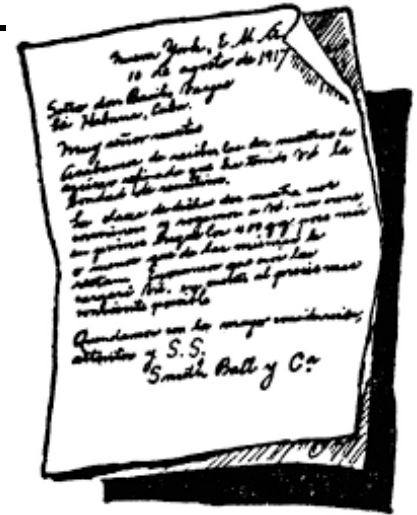 Nueva York, E. U. A.
10 de agosto de 1917
Señor don Basilio Vargas
La Habana, Cuba.
Muy señor nuestro
Acabamos de recibir las dos muestras de
azúcar refinado que ha tenido Vd la
bondad de remitirnos.
La clase de dichas dos
conviene y rogamos a Vd. nos
en primer
o menos que de las mismas le
restan. Esperamos que nos las
cargará Vd.
corriente posible
Quedamos con la mayor consideración,
atentos y S. S.
Smith Ball y Cª